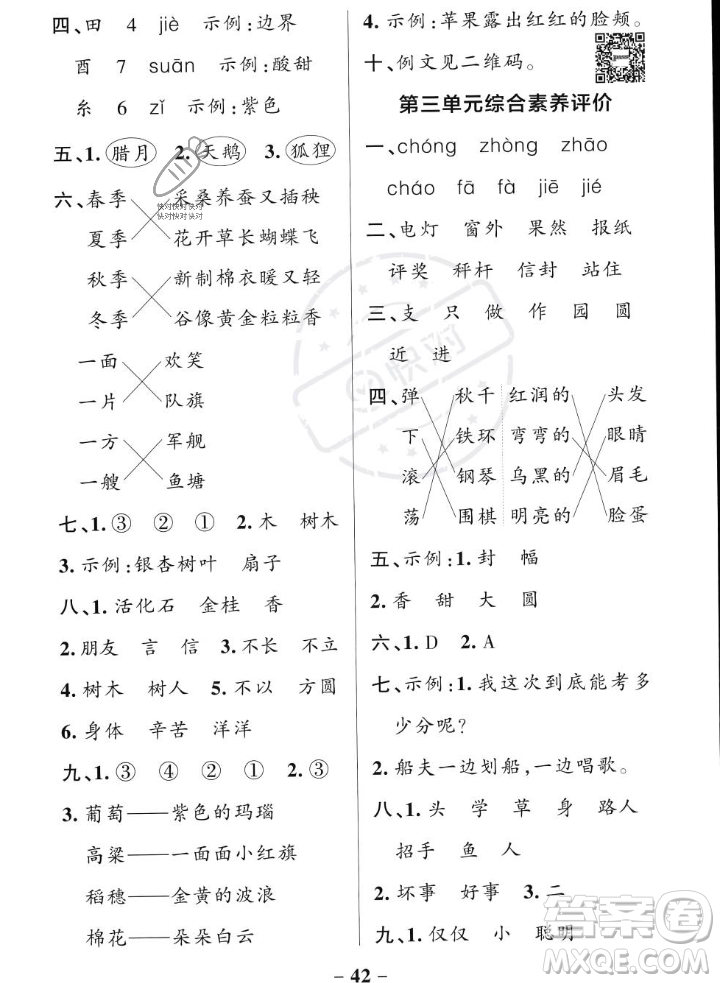 四、田 4 jiè 示例:边界
酉 7 suān 示例:酸甜
糸 6 zǐ 示例:紫色
五、1. 腊月 2. 天鹅 3. 狐狸
六、春季 采桑养蚕又插秧
夏季 花开草长蝴蝶飞
秋季 新制棉衣暖又轻
冬季 谷像黄金粒粒香
一面 欢笑
一片 队旗
一方 军舰
一艘 鱼塘
七、1. ③ ② ① 2. 木 树木
3. 示例:银杏树叶 扇子
八、1. 活化石 金桂 香
2. 朋友 言 信 3. 不长 不立
4. 树木 树人 5. 不以 方圆
6. 身体 辛苦 洋洋
九、1. ③ ④ ② ① 2. ③
3. 葡萄——紫色的玛瑙
高粱——一面面小红旗
稻穗——金黄的波浪
棉花——朵朵白云
4. 示例:苹果露出红红的脸颊。
十、例文见二维码。
第三单元综合素养评价
一、chóng zhòng zhāo
cháo fā fà jiē jié
二、电灯 窗外 果然 报纸
评奖 秤杆 信封 站住
三、支 只 做 作 园 圆
近 进
四、弹 秋千 红润的 头发
下 铁环 弯弯的 眼睛
滚 钢琴 乌黑的 眉毛
荡 围棋 明亮的 脸蛋
五、示例:1. 封 幅
2. 香 甜 大 圆
六、1. D 2. A
七、示例:1. 我这次到底能考多
少分呢?
2. 船夫一边划船,一边唱歌。
八、1. 头 学 草 身 路人
招手 鱼 人
2. 坏事 好事 3. 二
九、1. 仅仅 小 聪明
– 42 –
快对快对快对
快对快对快对
快对
答案圈
MXQE.COM